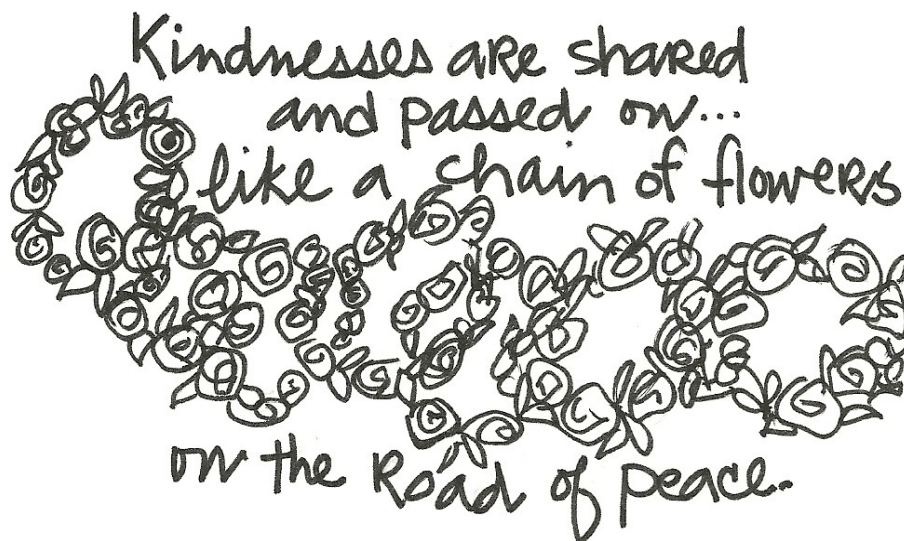 Kindnesses are shared
and passed on...
like a chain of flowers
on the Road of peace.